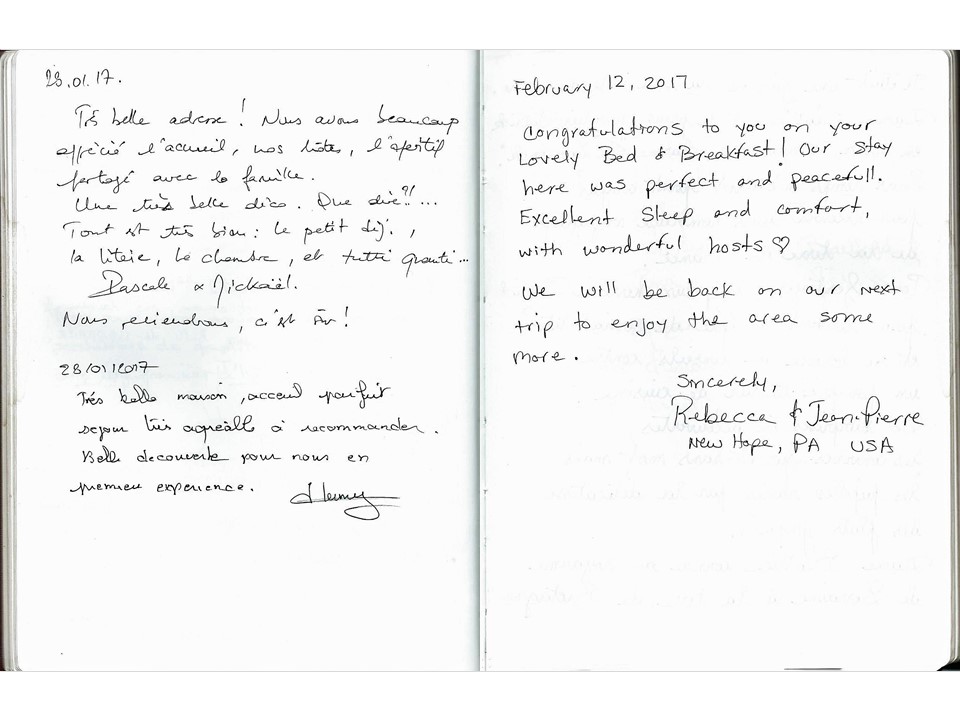 28.01.17.
Très belle adresse ! Nous avons beaucoup
apprécié l'accueil, nos hôtes, l'apéritif
partagé avec la famille.
Une très belle déco. Que dire ?!...
Tout est très bien : le petit dèj.,
la literie, la chambre, et tutti quanti...
Pascale & Mickaël.
Nous reviendrons, c'est sûr !
28/01/2017
Très belle maison, acceuil parfait
sejour très agréable à recommander.
Belle decouverte pour nous en
premier experience.
February 12, 2017
Congratulations to you on your
Lovely Bed & Breakfast! Our stay
here was perfect and peacefull.
Excellent Sleep and comfort,
with wonderful hosts ♡
We will be back on our next
trip to enjoy the area some
more.
Sincerely,
Rebecca & Jean-Pierre
New Hope, PA USA